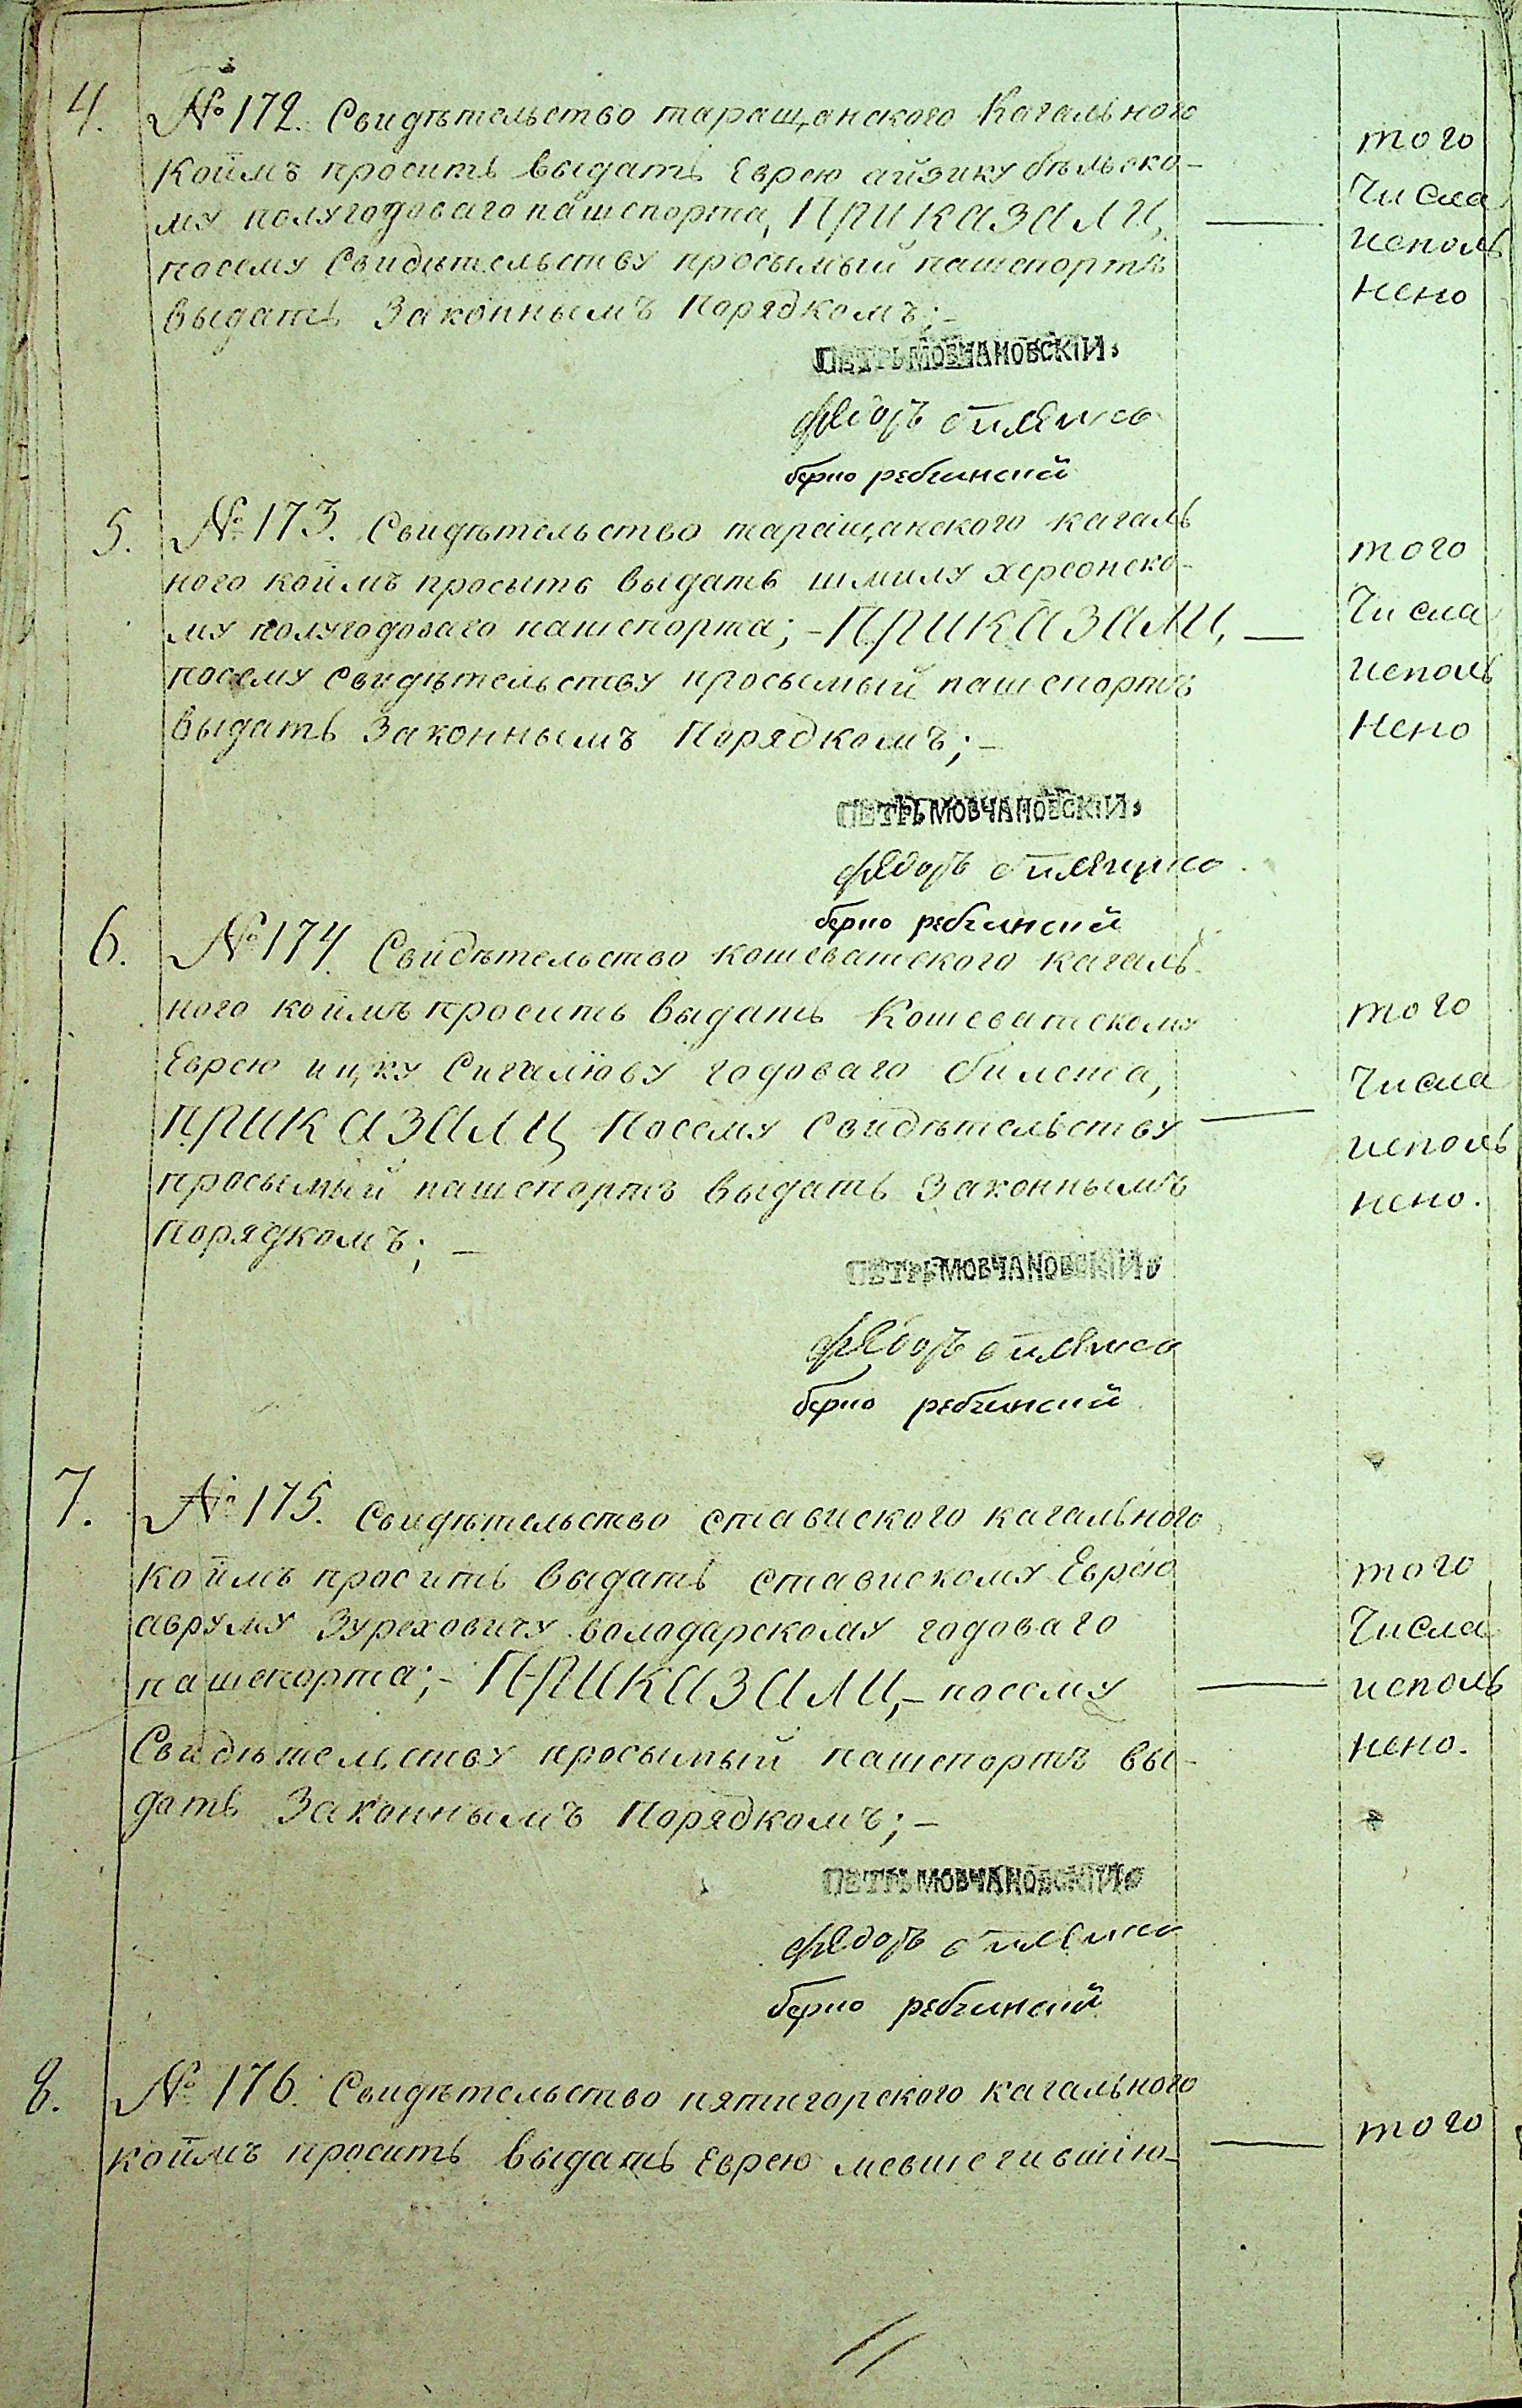 4. № 172. Свидѣтельство таращанского Кагального
коимъ проситъ выдать Еврею айзику бѣльско-
му полугодоваго пашепорта, ПРИКАЗАЛИ, —
посему Свидѣтельству просымый пашепортъ
выдать Законнымъ Порядкомъ; –
того
Числа
исполь
нено
ПЕТРЪ МОВЧАНОВСКІЙ
федоръ
берко
5. № 173. Свидѣтельство таращанского кагаль
ного коимъ проситъ выдать шмилу херсонско-
му полугодоваго пашепорта; – ПРИКАЗАЛИ, —
посему свидѣтельству просымый пашепортъ
выдать Законнымъ Порядкомъ; –
того
Числа
исполь
нено
ПЕТРЪ МОВЧАНОВСКІЙ
федоръ
берко
6. № 174. Свидѣтельство кошеватского кагаль
ного коимъ проситъ выдать Кошеватскому
Еврею ицку Сигалюву годоваго билета,
ПРИКАЗАЛИ, Посему Свидѣтельству —
просымый пашепортъ выдать Законнымъ
Порядкомъ; –
того
Числа
исполь
нено.
ПЕТРЪ МОВЧАНОВСКІЙ
федоръ
берко
7. № 175. Свидѣтельство ставиского кагального
коимъ проситъ выдать ставискому Еврею
авруму Зуреховичу володарскому годоваго
пашепорта; – ПРИКАЗАЛИ, – посему —
Свидѣтельству просымый пашепортъ вы-
дать Законнымъ Порядкомъ; –
того
Числа
исполь
нено.
ПЕТРЪ МОВЧАНОВСКІЙ
федоръ
берко
8. № 176. Свидѣтельство пятигорского кагального
коимъ проситъ выдать Еврею —
того